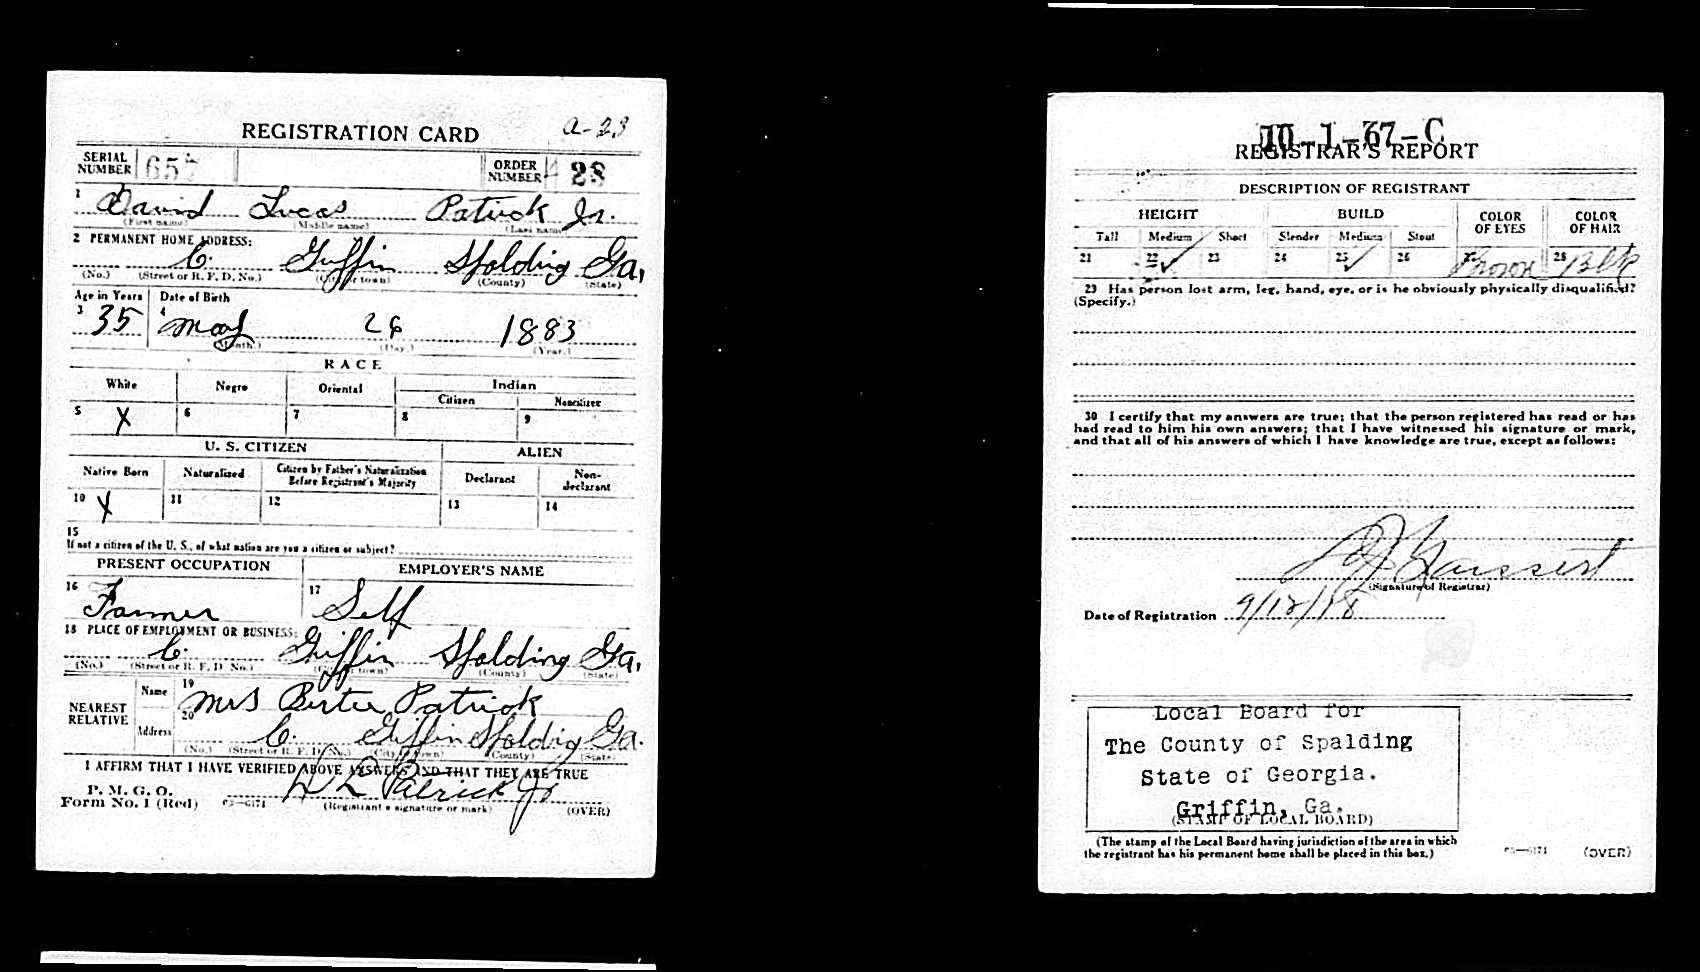 REGISTRATION CARD
a-23
SERIAL NUMBER 657
ORDER NUMBER 28
1 David Lucas Patrick Jr.
(First name) (Middle name) (Last name)
2 PERMANENT HOME ADDRESS:
C. Griffin Spalding Ga.
(No.) (Street or R. F. D. No.) (City or town) (County) (State)
Age in Years Date of Birth
3 35 4 May 26 1883
(Month.) (Day.) (Year.)
RACE
White Negro Oriental Indian
Citizen Noncitizen
5 X 6 7 8 9
U. S. CITIZEN ALIEN
Native Born Naturalized Citizen by Father's Naturalization Before Registrant's Majority Declarant Non-declarant
10 X 11 12 13 14
15
If not a citizen of the U. S., of what nation are you a citizen or subject?
PRESENT OCCUPATION EMPLOYER'S NAME
16 Farmer 17 Self
18 PLACE OF EMPLOYMENT OR BUSINESS:
C. Griffin Spalding Ga.
(No.) (Street or R. F. D. No.) (City or town) (County) (State)
NEAREST RELATIVE
Name 19 Mrs Bertie Patrick
Address 20 C. Griffin Spaldig Ga.
(No.) (Street or R. F. D. No.) (City or town) (County) (State)
I AFFIRM THAT I HAVE VERIFIED ABOVE ANSWERS AND THAT THEY ARE TRUE
P. M. G. O.
Form No. 1 (Red) 03—6171 D L Patrick Jr
(Registrant's signature or mark) (OVER)
10-1-67-C
REGISTRAR'S REPORT
DESCRIPTION OF REGISTRANT
HEIGHT BUILD COLOR OF EYES COLOR OF HAIR
Tall Medium Short Slender Medium Stout
21 22 ✓ 23 24 25 ✓ 26 27 Brown 28 Blk
29 Has person lost arm, leg, hand, eye, or is he obviously physically disqualified?
(Specify.)
30 I certify that my answers are true; that the person registered has read or has
had read to him his own answers; that I have witnessed his signature or mark,
and that all of his answers of which I have knowledge are true, except as follows:
(Signature of Registrar)
Date of Registration 9/12/18
Local Board for
The County of Spalding
State of Georgia.
Griffin, Ga.
(STAMP OF LOCAL BOARD)
(The stamp of the Local Board having jurisdiction of the area in which
the registrant has his permanent home shall be placed in this box.)
03—6171 (OVER)